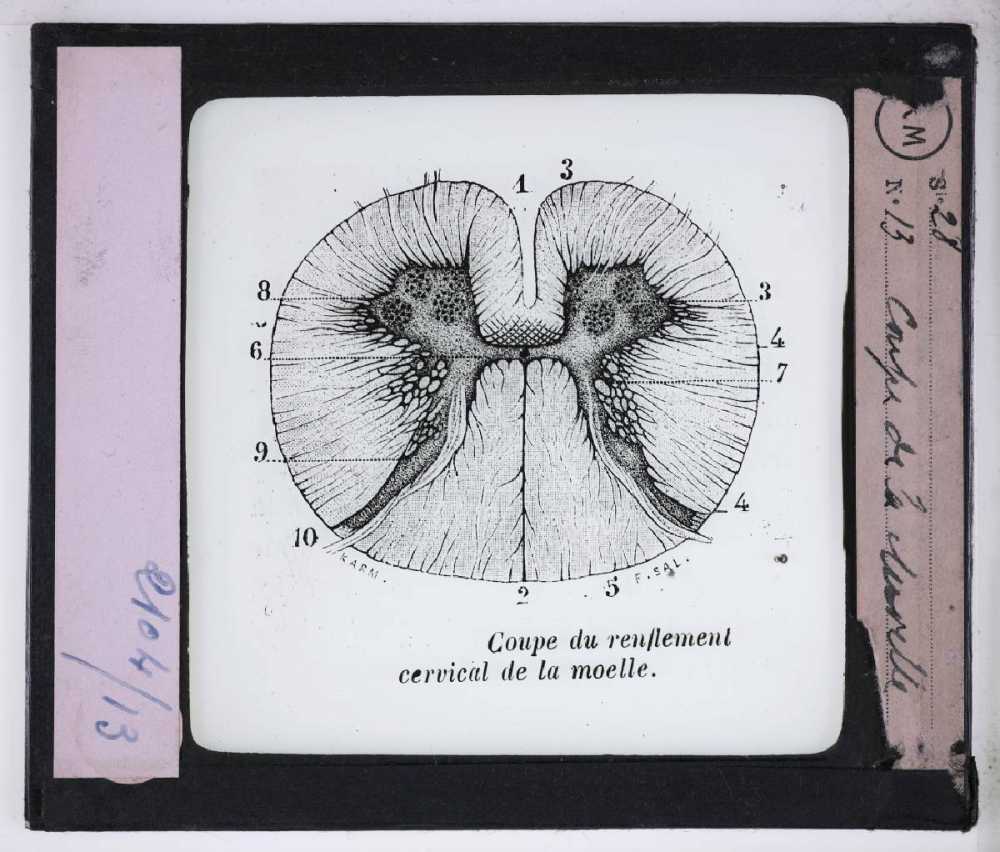 1
3
8
3
4
6
7
9
4
10
KARM.
F. SAL.
2
5
Coupe du renflement
cervical de la moelle.
2104/13
KM
Sie 28
No 13 Coupe de la